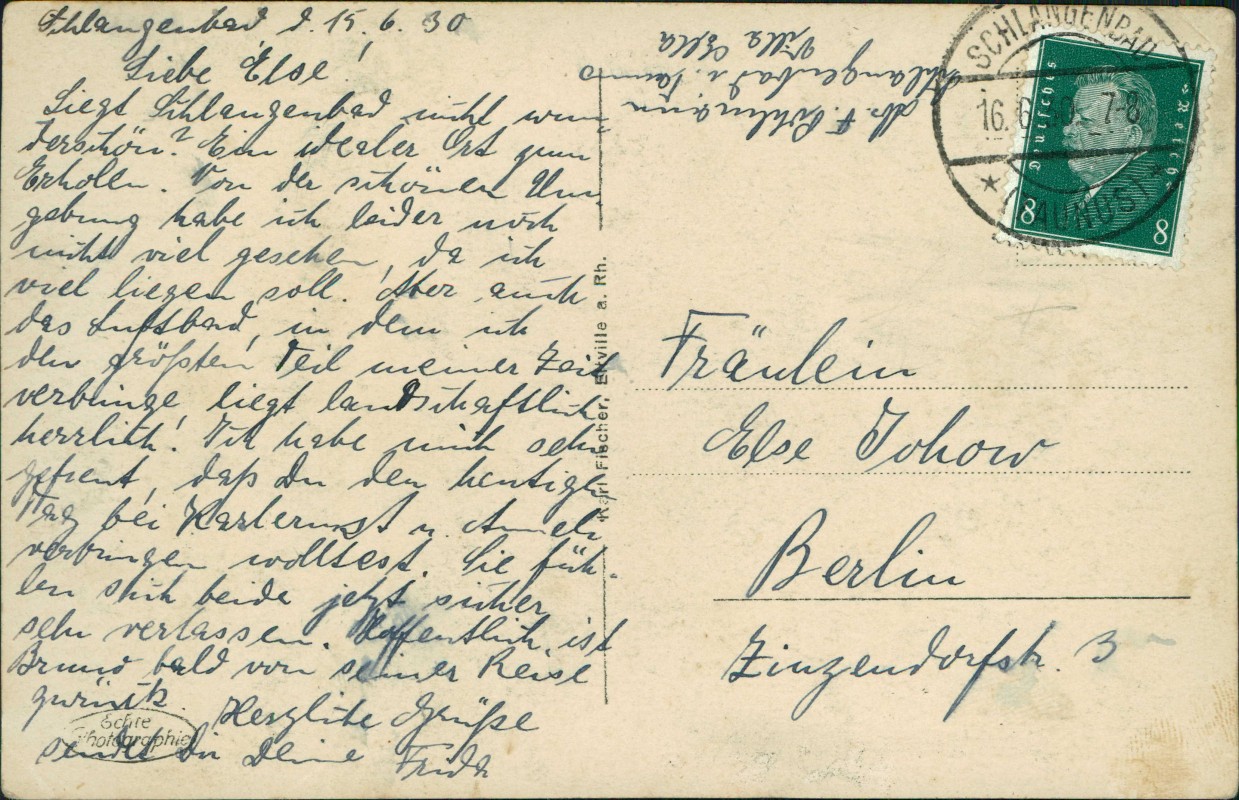 Schlangenbad d. 15. 6. 30
Liebe Else!
Liegt Schlangenbad nicht wun
derschön? Ein idealer Ort zum
Erholen. Von der schönen Um
gebung habe ich leider noch
nicht viel gesehen, da ich
viel liegen soll. Aber auch
das Luftbad, in dem ich
den größten Teil meiner Zeit
verbringe liegt landschaftlich
herrlich! Ich habe mich sehr
gefreut, daß Du den heutigen
Tag bei Karlernst u. 
verbringen wolltest. Sie füh
len sich beide jetzt sicher
sehr verlassen. Hoffentlich ist
Bruno bald von seiner Reise
zurück. Herzliche Grüße
sendet Dir Deine Frida
Echte
Photographie
Karl Fischer, Eltville a. Rh.
F.
Schlangenbad i. Taunus
Villa Ella
SCHLANGENBAD
16. 6. 30. 7-8
* (TAUNUS) *
Deutsches Reich
8 8
Fräulein
Else Johow
Berlin
Zinzendorfstr. 3